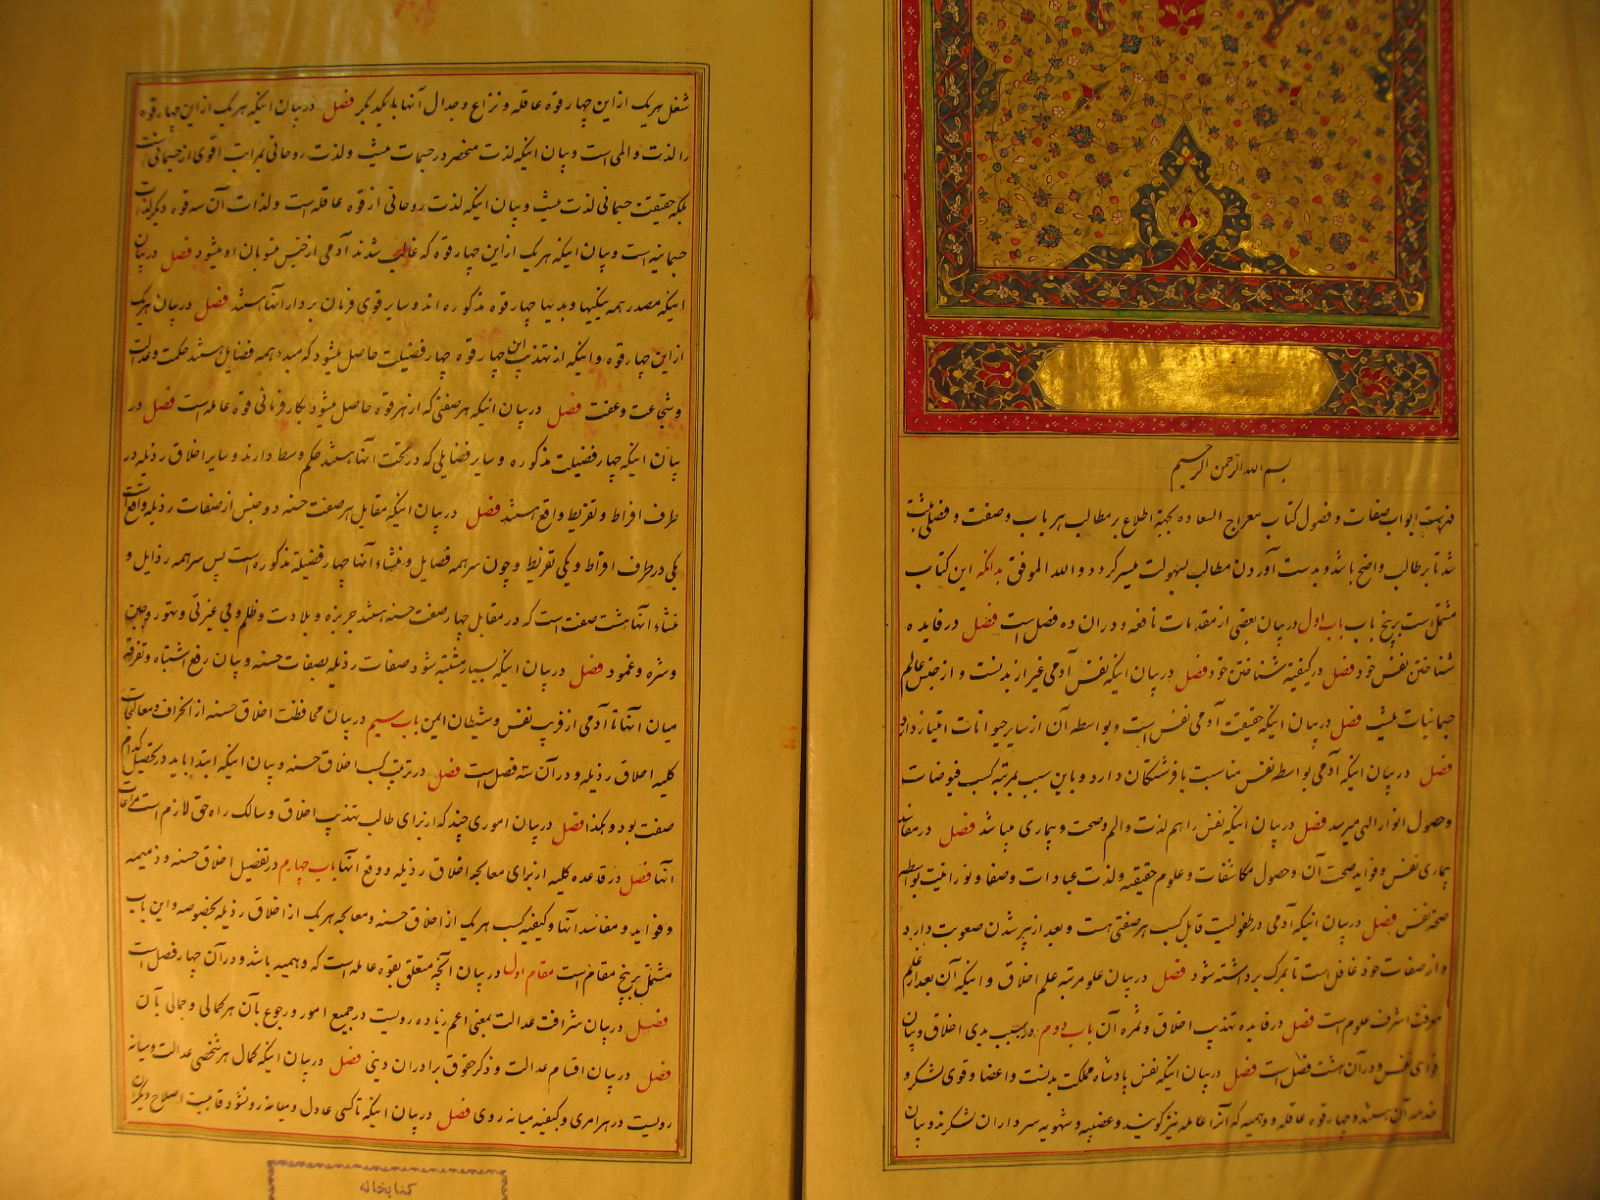 بسم الله الرحمن الرحیم
فهرست ابواب صفات و فصول کتاب معراج السعاده بجهة اطلاع بر مطالب هر باب و صفت و فصلی ثبت
شد تا بر طالب واضح باشد و بدست آوردن مطالب بسهولت میسر کردد و الله الموفق بدانکه این کتاب
مشتمل است بر پنج باب باب اول در بیان بعضی از مقدمات نافعه و در ان ده فصل است فصل در فایده
شناختن نفس خود فصل در کیفیة شناختن خود فصل در بیان اینکه نفس آدمی غیر از بدنست و از جنس عالم
جسمانیات نیست فصل در بیان اینکه حقیقت آدمی نفس است و بواسطه آن از سایر حیوانات امتیاز دارد
فصل در بیان اینکه آدمی بواسطه نفس مناسبت با فرشتکان دارد و باین سبب بمرتبه کسب فیوضات
و حصول انوار الهی میرسد فصل در بیان اینکه نفس را هم لذت و الم و صحت و بیماری میباشد فصل در مفاسد
بیماری نفس و فواید صحت آن و حصول مکاشفات و علوم حقیقیه و لذت عبادات و صفا و نورانیت بواسطه
صحه نفس فصل در بیان اینکه آدمی در طفولیت قابل کسب هر صفتی هست و بعد از پیر شدن صعوبت دارد
و از صفات خود غافل است تا بمرک برداشته شود فصل در بیان علو مرتبه علم اخلاق و اینکه آن بعد از علم
معرفت اشرف علوم است فصل در فایده تهذیب اخلاق و ثمره آن باب دوم در سبب بدی اخلاق و بیان
قوای نفس و در آن هشت فصل است فصل در بیان اینکه نفس پادشاه مملکت بدنست و اعضا و قوی لشکر و
خدمه آن هستند و چهار قوه عاقله و وهمیه که آنرا عامله نیز کویند و غضبیه و شهویه سرداران لشکرند و بیان
شغل هر یک از این چهار قوه عاقله و نزاع و جدال آنها با یکدیکر فصل در بیان اینکه هر یک از این چهار قوه
را لذت و المی است و بیان اینکه لذت منحصر در جسمیات نیست و لذت روحانی بمراتب اقوی از جسمانی است
بلکه حقیقت جسمانی لذت نیست و بیان اینکه لذت روحانی از قوه عاقله است و لذات آن سه قوه دیکر لذات
جسمانیه است و بیان اینکه هر یک از این چهار قوه که غالب شدند آدمی از جنس منسوبان او میشود فصل در بیان
اینکه مصدر همه نیکیها و بدیها چهار قوه مذکوره اند و سایر قوی فرمان بردار انها هستند فصل در بیان هر یک
از این چهار قوه و اینکه از تهذیب این چهار قوه چهار فضیلت حاصل میشود که مبدء همه فضایل هستند حکمت و عدالت
و شجاعت و عفت فصل در بیان اینکه هر صفتی که از هر قوه حاصل میشود بکار فرمائی قوه عامله است فصل در
بیان اینکه چهار فضیلت مذکوره و سایر فضایلی که در تحت انها هستند حکم وسط دارند و سایر اخلاق رذیله در
طرف افراط و تفریط واقع هستند فصل در بیان اینکه مقابل هر صفت حسنه دو جنس از صفات رذیله واقع است
یکی در طرف افراط و یکی تفریط و چون سر همه فضایل و منشاء آنها چهار فضیلة مذکوره است پس سر همه رذایل و
منشاء انها هشت صفت است که در مقابل چهار صفت حسنه هستند جربزه و بلادت و ظلم و بی غیرتی و تهور و جبن
و شره و خمود فصل در بیان اینکه بسیار مشتبه شود صفات رذیله بصفات حسنه و بیان رفع اشتباه و تفرقه
میان انها تا آدمی از فریب نفس و شیطان ایمن باب سیم در بیان محافظت اخلاق حسنه از انحراف و معالجات
کلیه اخلاق رذیله و در آن سه فصل است فصل در ترتیب کسب اخلاق حسنه و بیان اینکه ابتدا باید در تحصیل کدام
صفت بود و هکذا فصل در بیان اموری چند که از برای طالب تهذیب اخلاق و سالک راه حق لازم است مراعات
آنها فصل در قاعده کلیه از برای معالجه اخلاق رذیله و رفع انها باب چهارم در تفصیل اخلاق حسنه و ذمیمه
و فواید و مفاسد آنها و کیفیه کسب هر یک از اخلاق حسنه و معالجه هر یک از اخلاق رذیله بخصوصه و این باب
مشتمل بر پنج مقام است مقام اول در بیان آنچه متعلق بقوه عامله است که وهمیه باشد و در آن چهار فصل است
فصل در بیان شرافت عدالت بمعنی اعم زیاده رویست در جمیع امور و رجوع بآن هر کمالی و جمالی بآن
فصل در بیان اقسام عدالت و ذکر حقوق برادران دینی فصل در بیان اینکه کمال هر شخصی عدالت و میانه
رویست در هر امری و کیفیه میانه روی فصل در بیان اینکه تا کسی عادل و میانه رو نشود قابلیت اصلاح دیکران
کتابخانه